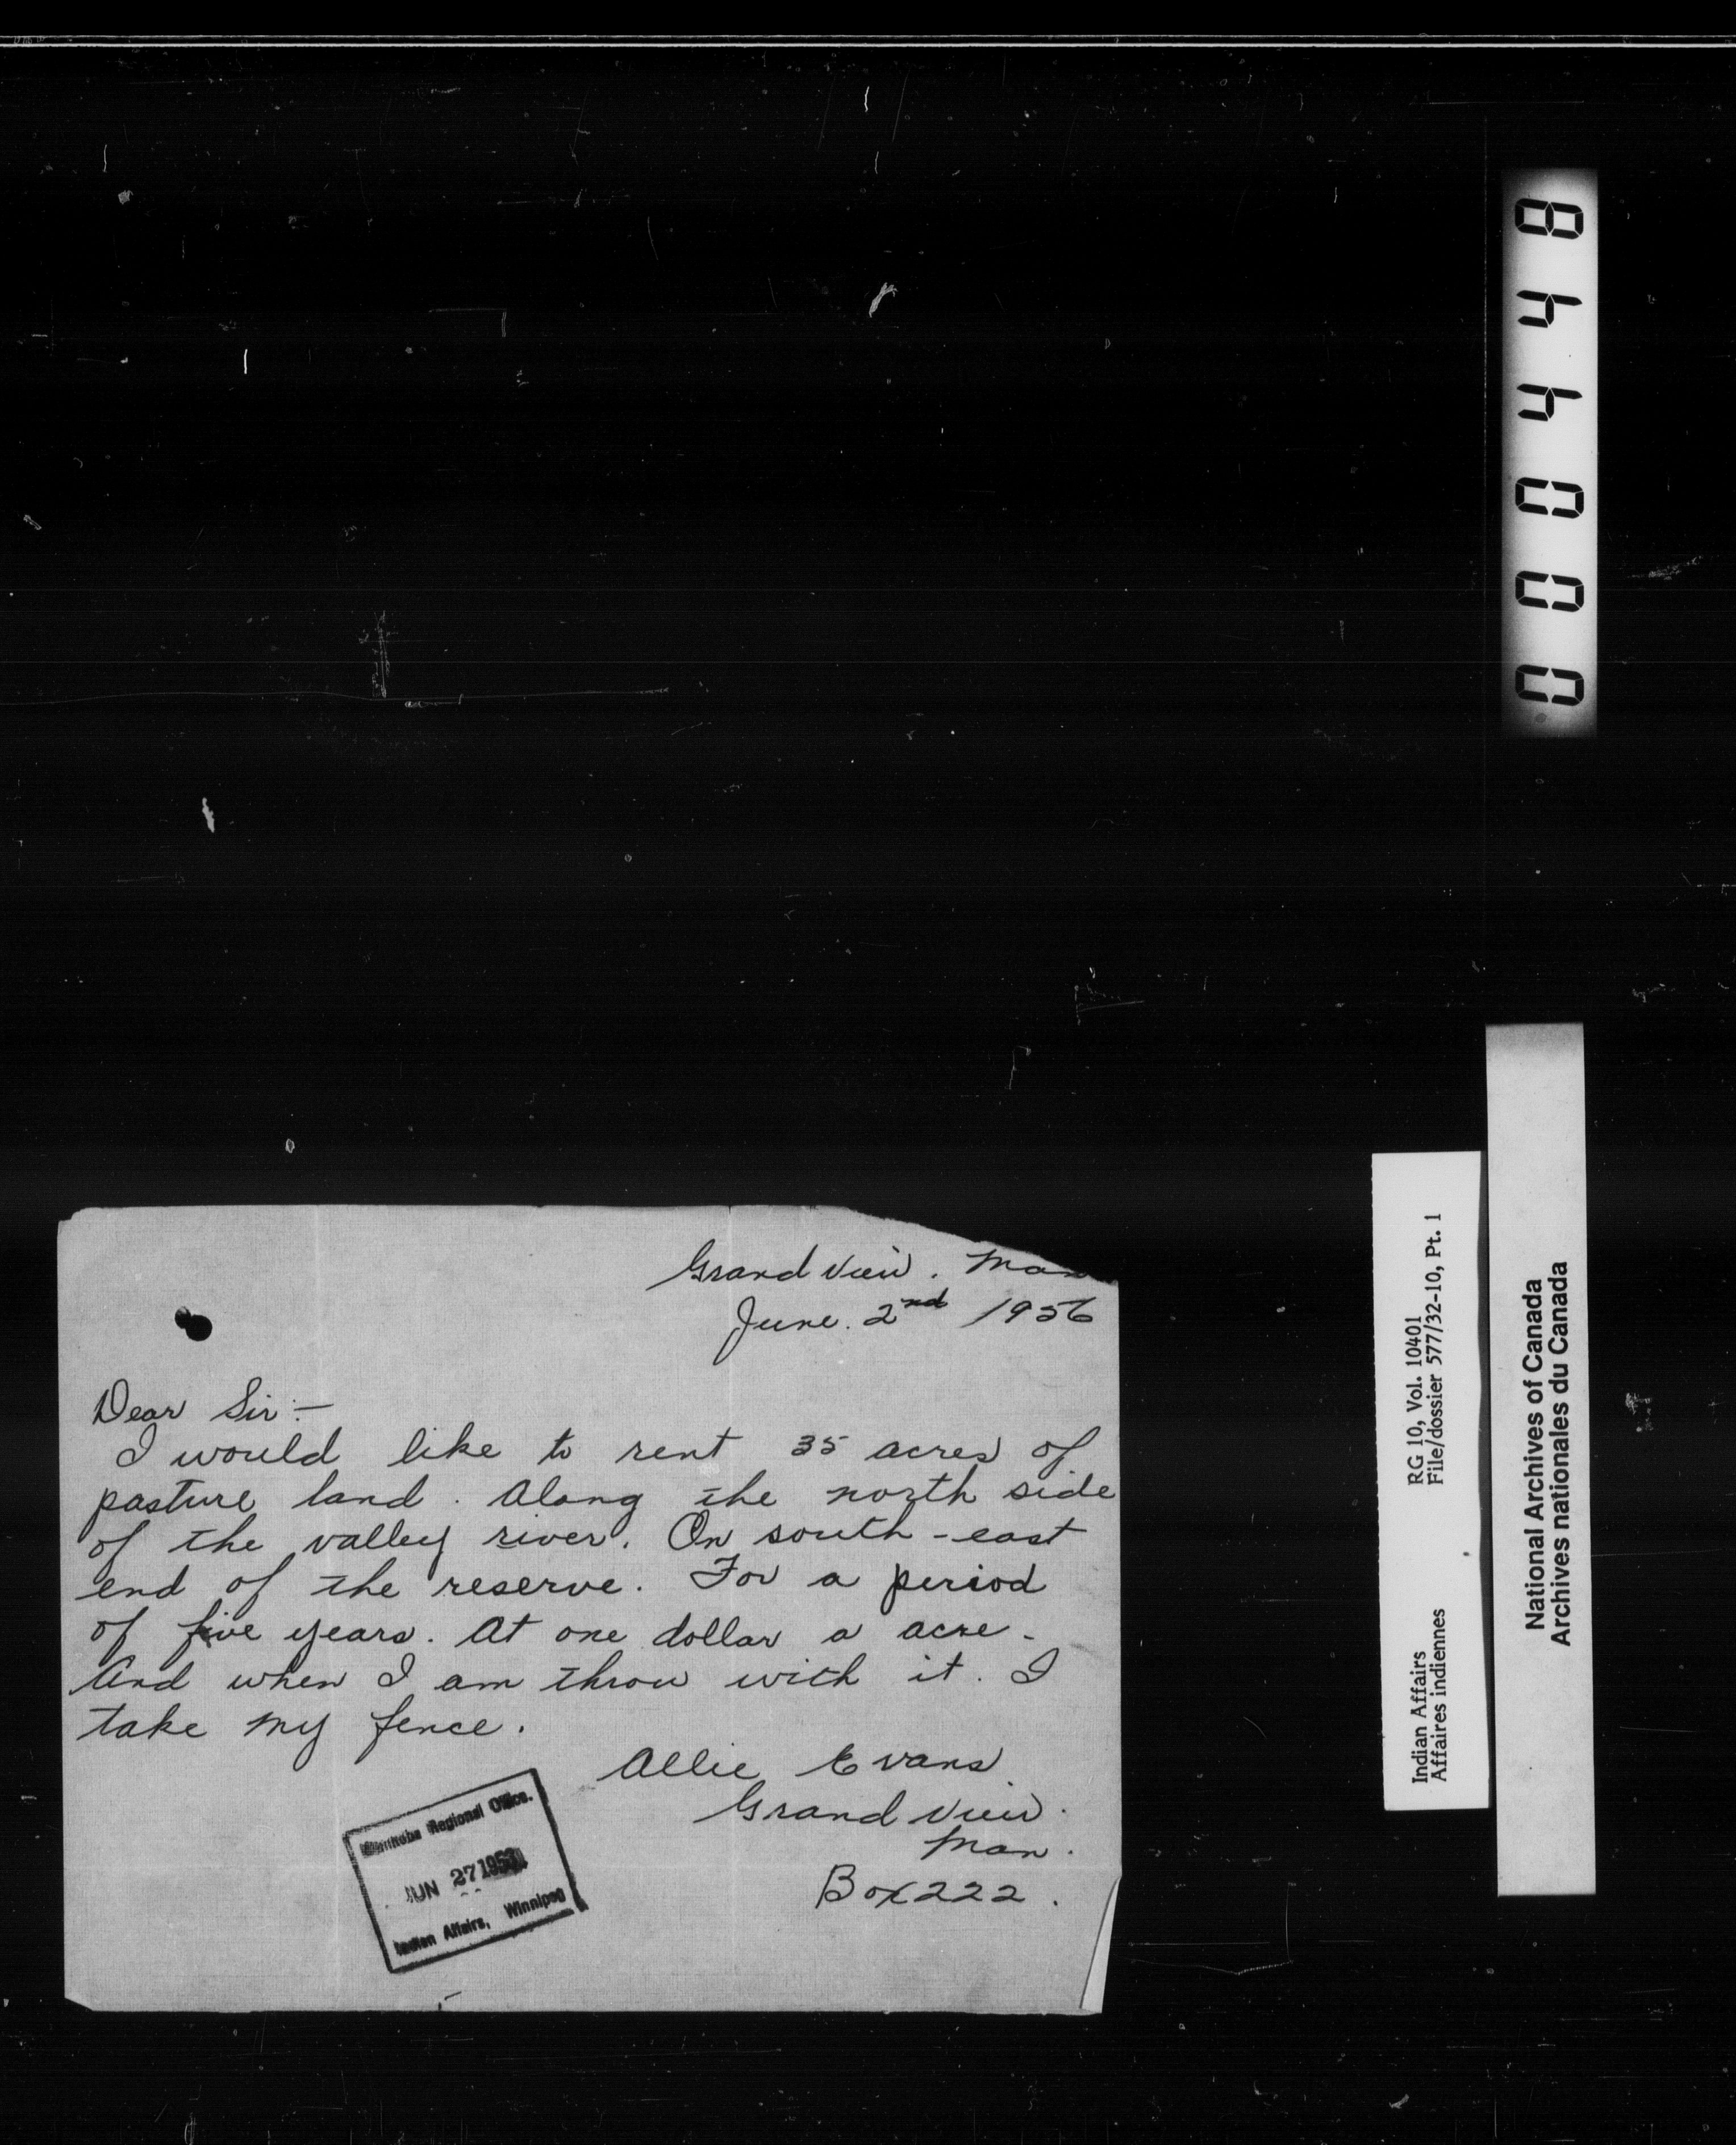 Grand View. Man
June. 2nd 1956
Dear Sir:-
I would like to rent 35 acres of
pasture land. Along the north side
of the valley river. On south-east
end of the reserve. For a period
of five years. At one dollar a acre-
And when I am throu with it. I
take my fence.
Allie Evans
Grand View.
Man.
Box 222.
Manitoba Regional Office.
JUN 27
Indian Affairs, Winnipeg
000448
RG 10, Vol. 10401
File/dossier 577/32-10, Pt. 1
Indian Affairs
Affaires indiennes
National Archives of Canada
Archives nationales du Canada